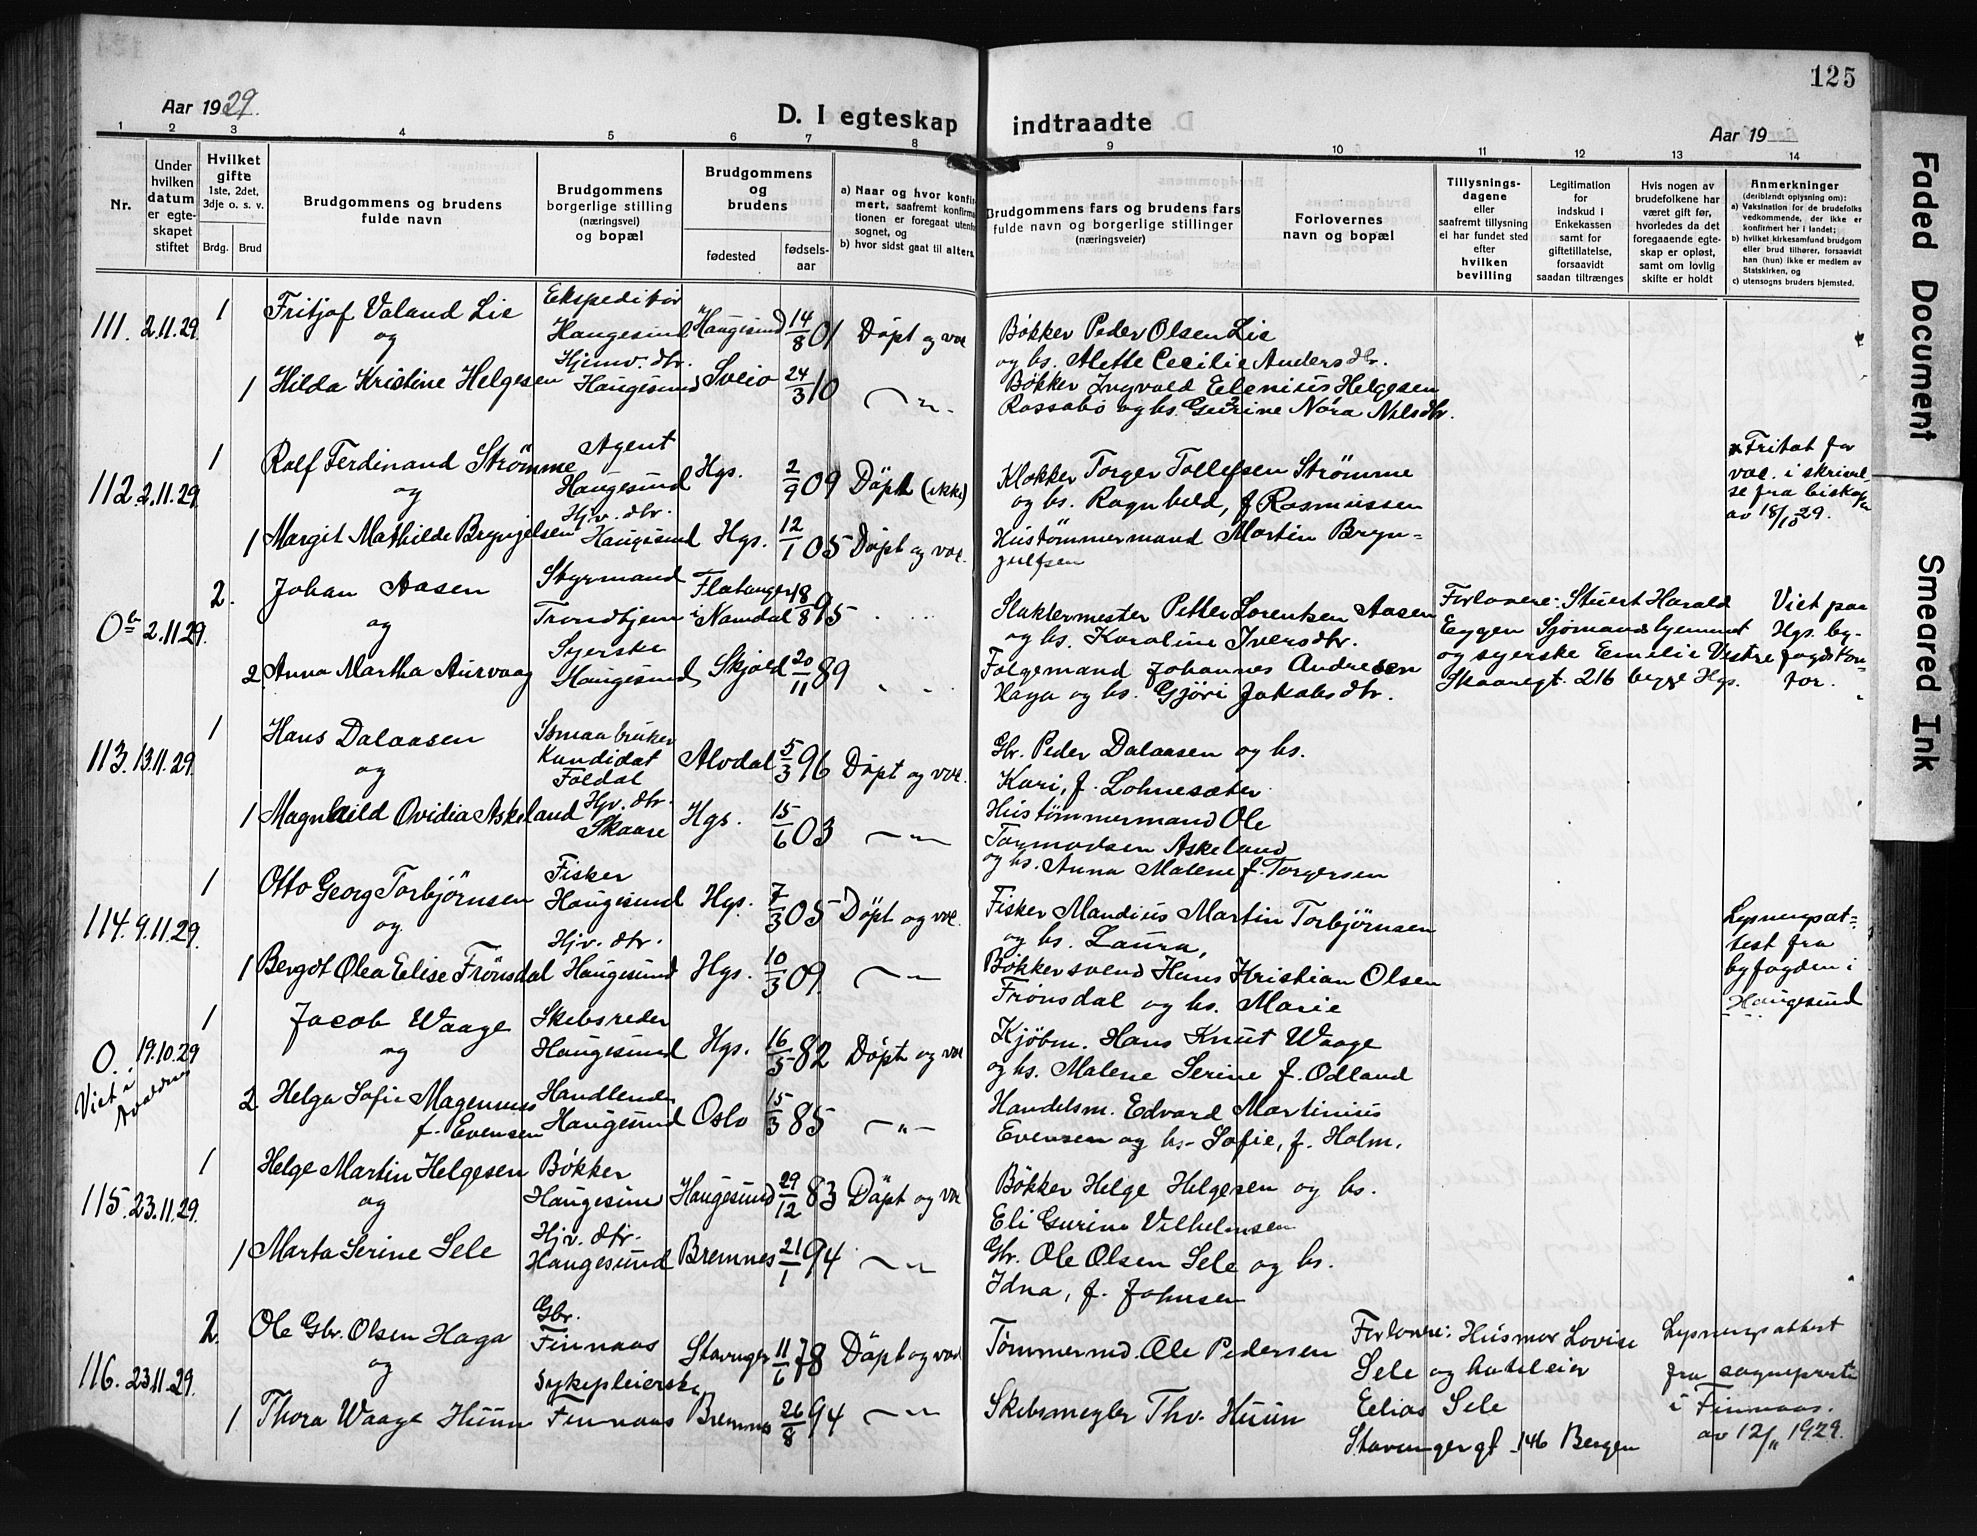 125
Aar 1929.
D. I egteskap indtraadte
Aar 19
1 2 3 4 5 6 7 8 9 10 11 12 13 14
Nr.
Under hvilken datum er egteskapet stiftet
Hvilket gifte 1ste, 2det, 3dje o. s. v.
Brdg. Brud
Brudgommens og brudens fulde navn
Brudgommens borgerlige stilling (næringsvei) og bopæl
Brudgommens og brudens
fødested
fødselsaar
a) Naar og hvor konfirmert, saafremt konfirmationen er foregaat utenfor sognet, og
b) hvor sidst gaat til alters.
Brudgommens fars og brudens fars fulde navn og borgerlige stillinger (næringsveier)
Forlovernes navn og bopæl
Tillysningsdagene eller saafremt tillysning ei har fundet sted efter hvilken bevilling
Legitimation for indskud i Enkekassen samt for giftetillatelse, forsaavidt saadan tiltrænges
Hvis nogen av brudefolkene har været gift før, hvorledes da det foregaaende egteskap er opløst, samt om lovlig skifte er holdt
Anmerkninger (deriblandt oplysning om):
a) Vaksination for de brudefolks vedkommende, der ikke er konfirmert her i landet;
b) hvilket kirkesamfund brudgom eller brud tilhører, forsaavidt han (hun) ikke er medlem av Statskirken, og
c) utensogns bruders hjemsted.
111. 2.11.29. 1 Fritjof Valand Lie Ekspeditør Haugesund Haugesund 14/8 01 Døpt og vac
og
1 Hilda Kristine Helgesen Hjemv. dtr. Haugesund Sveio 24/3 10 — " —
Bøkker Peder Olsen Lie
og hs. Alette Cecilie Andersdtr.
Bøkker Ingvald Elenius Helgesen
Rossabø og hs. Gurine Nora Nilsdtr.
112. 2.11.29. 1 Ralf Ferdinand Strømme Agent Haugesund Hgs. 2/9 09 Døpt (ikke)
og
1 Margit Mathilde Brynjelsen Hjv. dtr. Haugesund Hgs. 12/1 05 Døpt og vac.
Klokker Torger Tollefsen Strømme
og hs. Ragnhild, f Rasmussen
Hustømmermand Martin Bryn=
julfsen
x Fritat for
vac. i skrivel-
se fra biskopen
av 18/10 29.
2.11.29. 2. Johan Aasen Styrmand Trondhjem Flatanger i Namdal 18/8 95
og
2 Anna Martha Aurvaag Syerske Haugesund Skjold 20/11 89
Slaktermester Petter Lorentsen Aasen
og hs. Karoline Iversdtr.
Følgemand Johannes Andresen
Haga og hs. Gjøri Jakobsdtr.
Forlovere: Stuert Harald
Eggen Sjømandshjemmet
og syerske Emelie Vestre
Skaaregt. 216 begge Hgs.
Viet paa
Hgs. by-
fogdkon-
tor.
113. 13.11.29. 1 Hans Dalaasen Smaabruker Kandidat Foldal Alvdal 5/3 96 Døpt og vac.
og
1 Magnhild Ovidia Askeland Hjv. dtr. Skaare Hgs. 15/6 03 — " —
Gbr. Peder Dalaasen og hs.
Kari, f. Lohnesæter
Hustømmermand Ole
Tormodsen Askeland
og hs. Anna Malene f. Torgersen
114. 9.11.29. 1 Otto Georg Torbjørnsen Fisker Haugesund Hgs. 7/3 05 Døpt og vac.
og
1 Bergot Olea Elise Frønsdal Hjv. dtr. Haugesund Hgs. 10/3 09. — " —
Fisker Mandius Martin Torbjørnsen
og hs. Laura,
Bøkkersvend Hans Kristian Olsen
Frønsdal og hs. Marie
Lysningsat=
test fra
byfogden i
Haugesund
0. 19.10.29 1 Jacob Waage Skibsreder Haugesund Hgs. 16/5 82 Døpt og vac
Viet i Avaldsnes
og
2 Helga Sofie Magennes f. Evensen Handlende Haugesund Oslo 15/3 85 — " —
Kjøbm. Hans Knut Waage
og hs. Malene Serine f. Odland
Handelsm. Edvard Martinius
Evensen og hs. Sofie, f. Holm.
115. 23.11.29. 1 Helge Martin Helgesen Bøkker Haugesund Haugesund 29/12 83 Døpt og vac
og
1 Marta Serine Sele Hjv. dtr. Haugesund Bremnes 21/1 94 — " —
Bøkker Helge Helgesen og hs.
Eli Gurine Vilhelmsen
Gbr. Ole Olsen Sele og hs.
Idna, f. Johnsen
116. 23.11.29. 2. Ole Gbr. Olsen Haga Gbr. Finnaas Stavanger 11/6 78 Døpt og vac
og
1 Thora Waage Huun Sykepleierske Finnaas Bremnes 26/8 94 — " —
Tømmermd. Ole Pedersen
Skibsmegler Thv. Huun
Forlovere: Husmor Lovise
Sele og hoteleier
Elias Sele
Stavangergt 146 Bergen
Lysningsattest
fra sogneprest
i Finnaas.
av 12/11 1929.
Faded Document
Smeared Ink